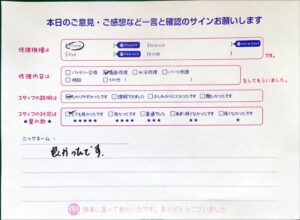 本日のご意見・ご感想など一言と確認のサインお願いします
修理機種は
iPhone
Android
iPad
その他
です。
修理内容は
バッテリー交換
画面修理
水没修理
パーツ修理
相談
その他
をしてもらいました。
スタッフの説明は
わかりやすかったです
理解できました
少しわかりにくかったです
難しかったです
スタッフの対応は
★星の数★
とても良かったです
良かったです
普通でした
あまり良くなかったです
良くなかったです
★★★★★
★★★★
★★★
★★
★
ニックネーム:
良かったです。
物凄に迷って良かったです。ありがとうございました